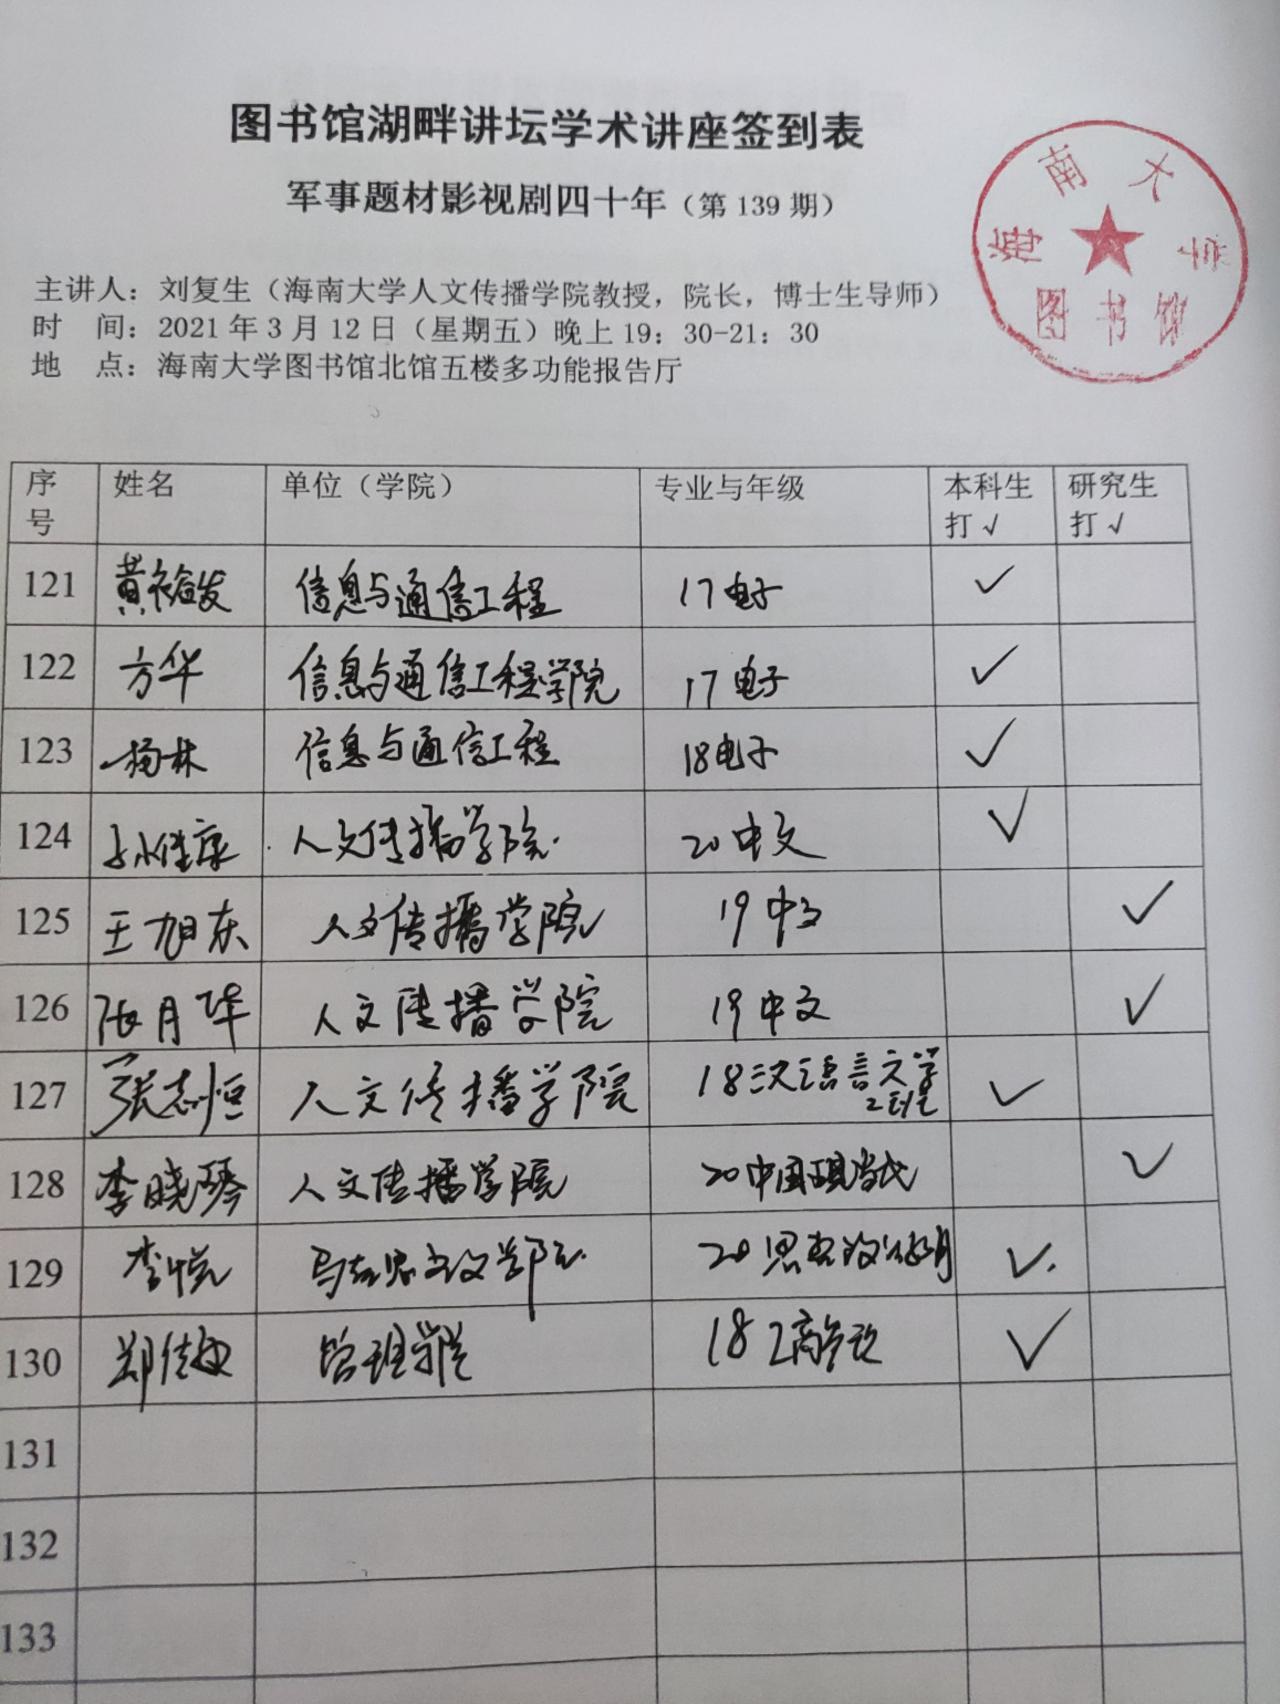 图书馆湖畔讲坛学术讲座签到表
军事题材影视剧四十年（第 139 期）
海南大学
图书馆
主讲人：刘复生（海南大学人文传播学院教授，院长，博士生导师）
时 间：2021 年 3 月 12 日（星期五）晚上 19：30-21：30
地 点：海南大学图书馆北馆五楼多功能报告厅
序号 姓名 单位（学院） 专业与年级 本科生打√ 研究生打√
121 黄裕发 信息与通信工程 17电子 ✓
122 方华 信息与通信工程学院 17电子 ✓
123 杨林 信息与通信工程 18电子 ✓
124 孙佳康 人文传播学院 20中文 ✓
125 王旭东 人文传播学院 19中文 ✓
126 张月华 人文传播学院 19中文 ✓
127 张志恒 人文传播学院 18汉语言文学 ✓
128 李晓琴 人文传播学院 20中国现当代 ✓
129 李悦 20思想政治教育 ✓
130 郑佳 管理学院 18工商 ✓
131
132
133